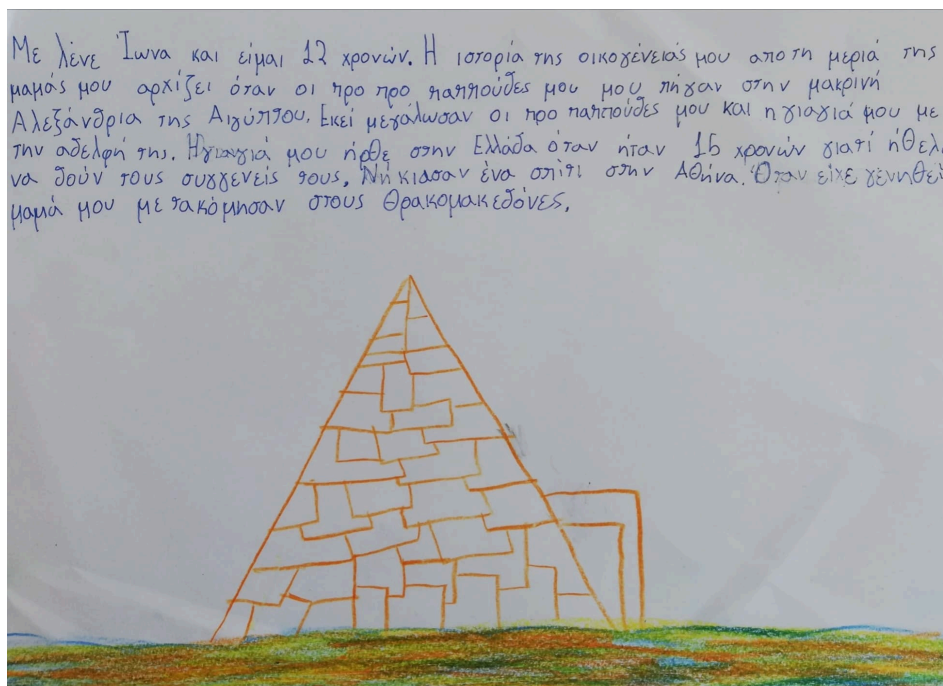 Με λένε Ίωνα και είμαι 12 χρονών. Η ιστορία της οικογένειάς μου απο τη μεριά της
μαμάς μου αρχίζει όταν οι προ προ παππούδες μου μου πήγαν στην μακρινή
Αλεξάνδρια της Αιγύπτου. Εκεί μεγάλωσαν οι προ παππούδες μου και η γιαγιά μου με
την αδελφή της. Η γιαγιά μου ήρθε στην Ελλάδα όταν ήταν 15 χρονών γιατί ήθελε
να δούν τους συγγενείς τους. Νήκιασαν ένα σπίτι στην Αθήνα. Όταν είχε γεννηθεί
μαμά μου μετακόμησαν στους Θρακομακεδόνες.